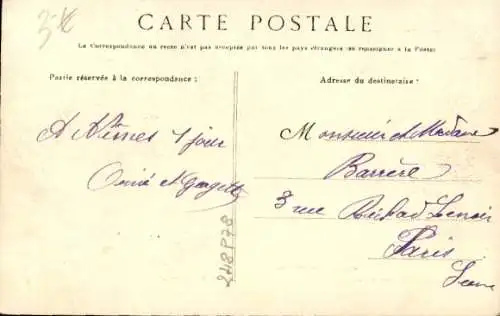 CARTE POSTALE
La Correspondance au recto n'est pas acceptée par tous les pays étrangers (se renseigner à la Poste)
Partie réservée à la correspondance :
A Nîmes 1 jour
et Georgette
Adresse du destinataire :
Monsieur et Madame
Barrère
3 rue Richard Lenoir
Paris
Seine
248P78